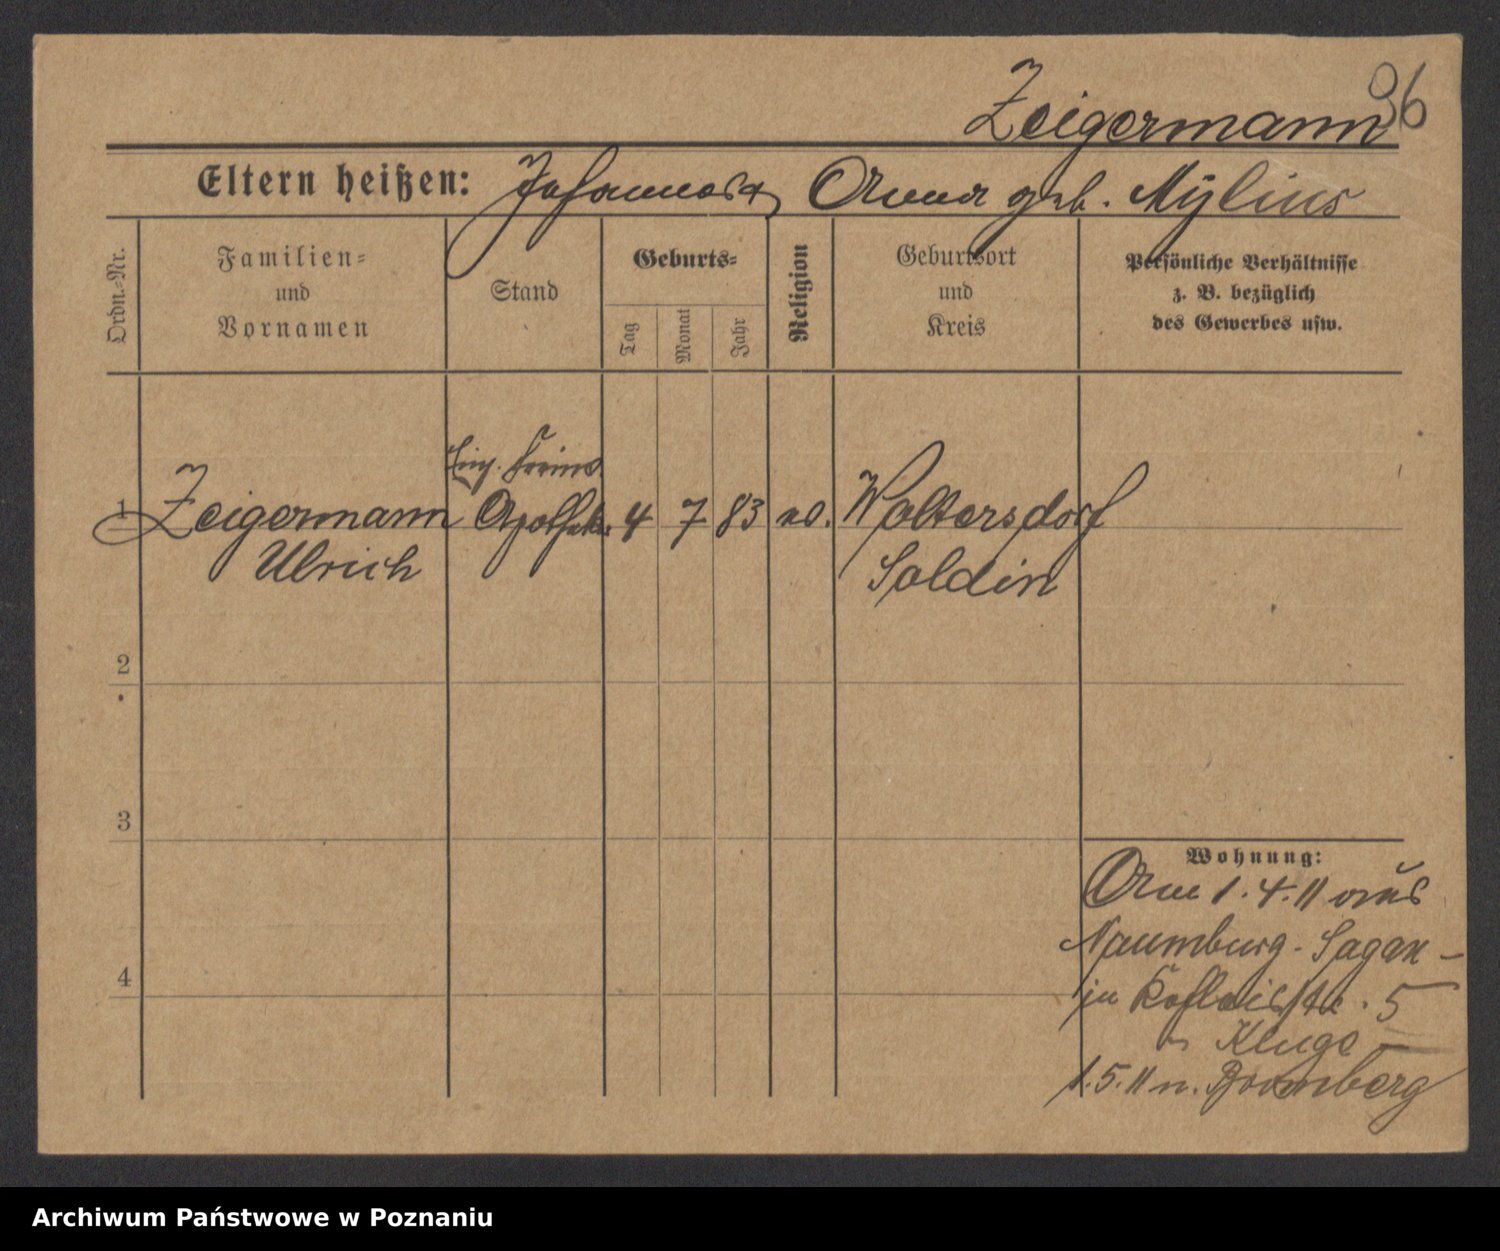 Zeigermann 96
Eltern heißen: Johannes u. Anna geb. Mylius
Ordn.-Nr.
Familien-
und
Vornamen
Stand
Geburts-
Tag
Monat
Jahr
Religion
Geburtsort
und
Kreis
Persönliche Verhältnisse
z. B. bezüglich
des Gewerbes usw.
Einj. Freiw.
1 Zeigermann Apotheker 4 7 83 Woltersdorf
Ulrich Soldin
2
3
4
Wohnung:
Am 1.4.11 aus
Naumburg-Sagan -
in 5
Kluge -
1.5.11 n. Bromberg
Archiwum Państwowe w Poznaniu